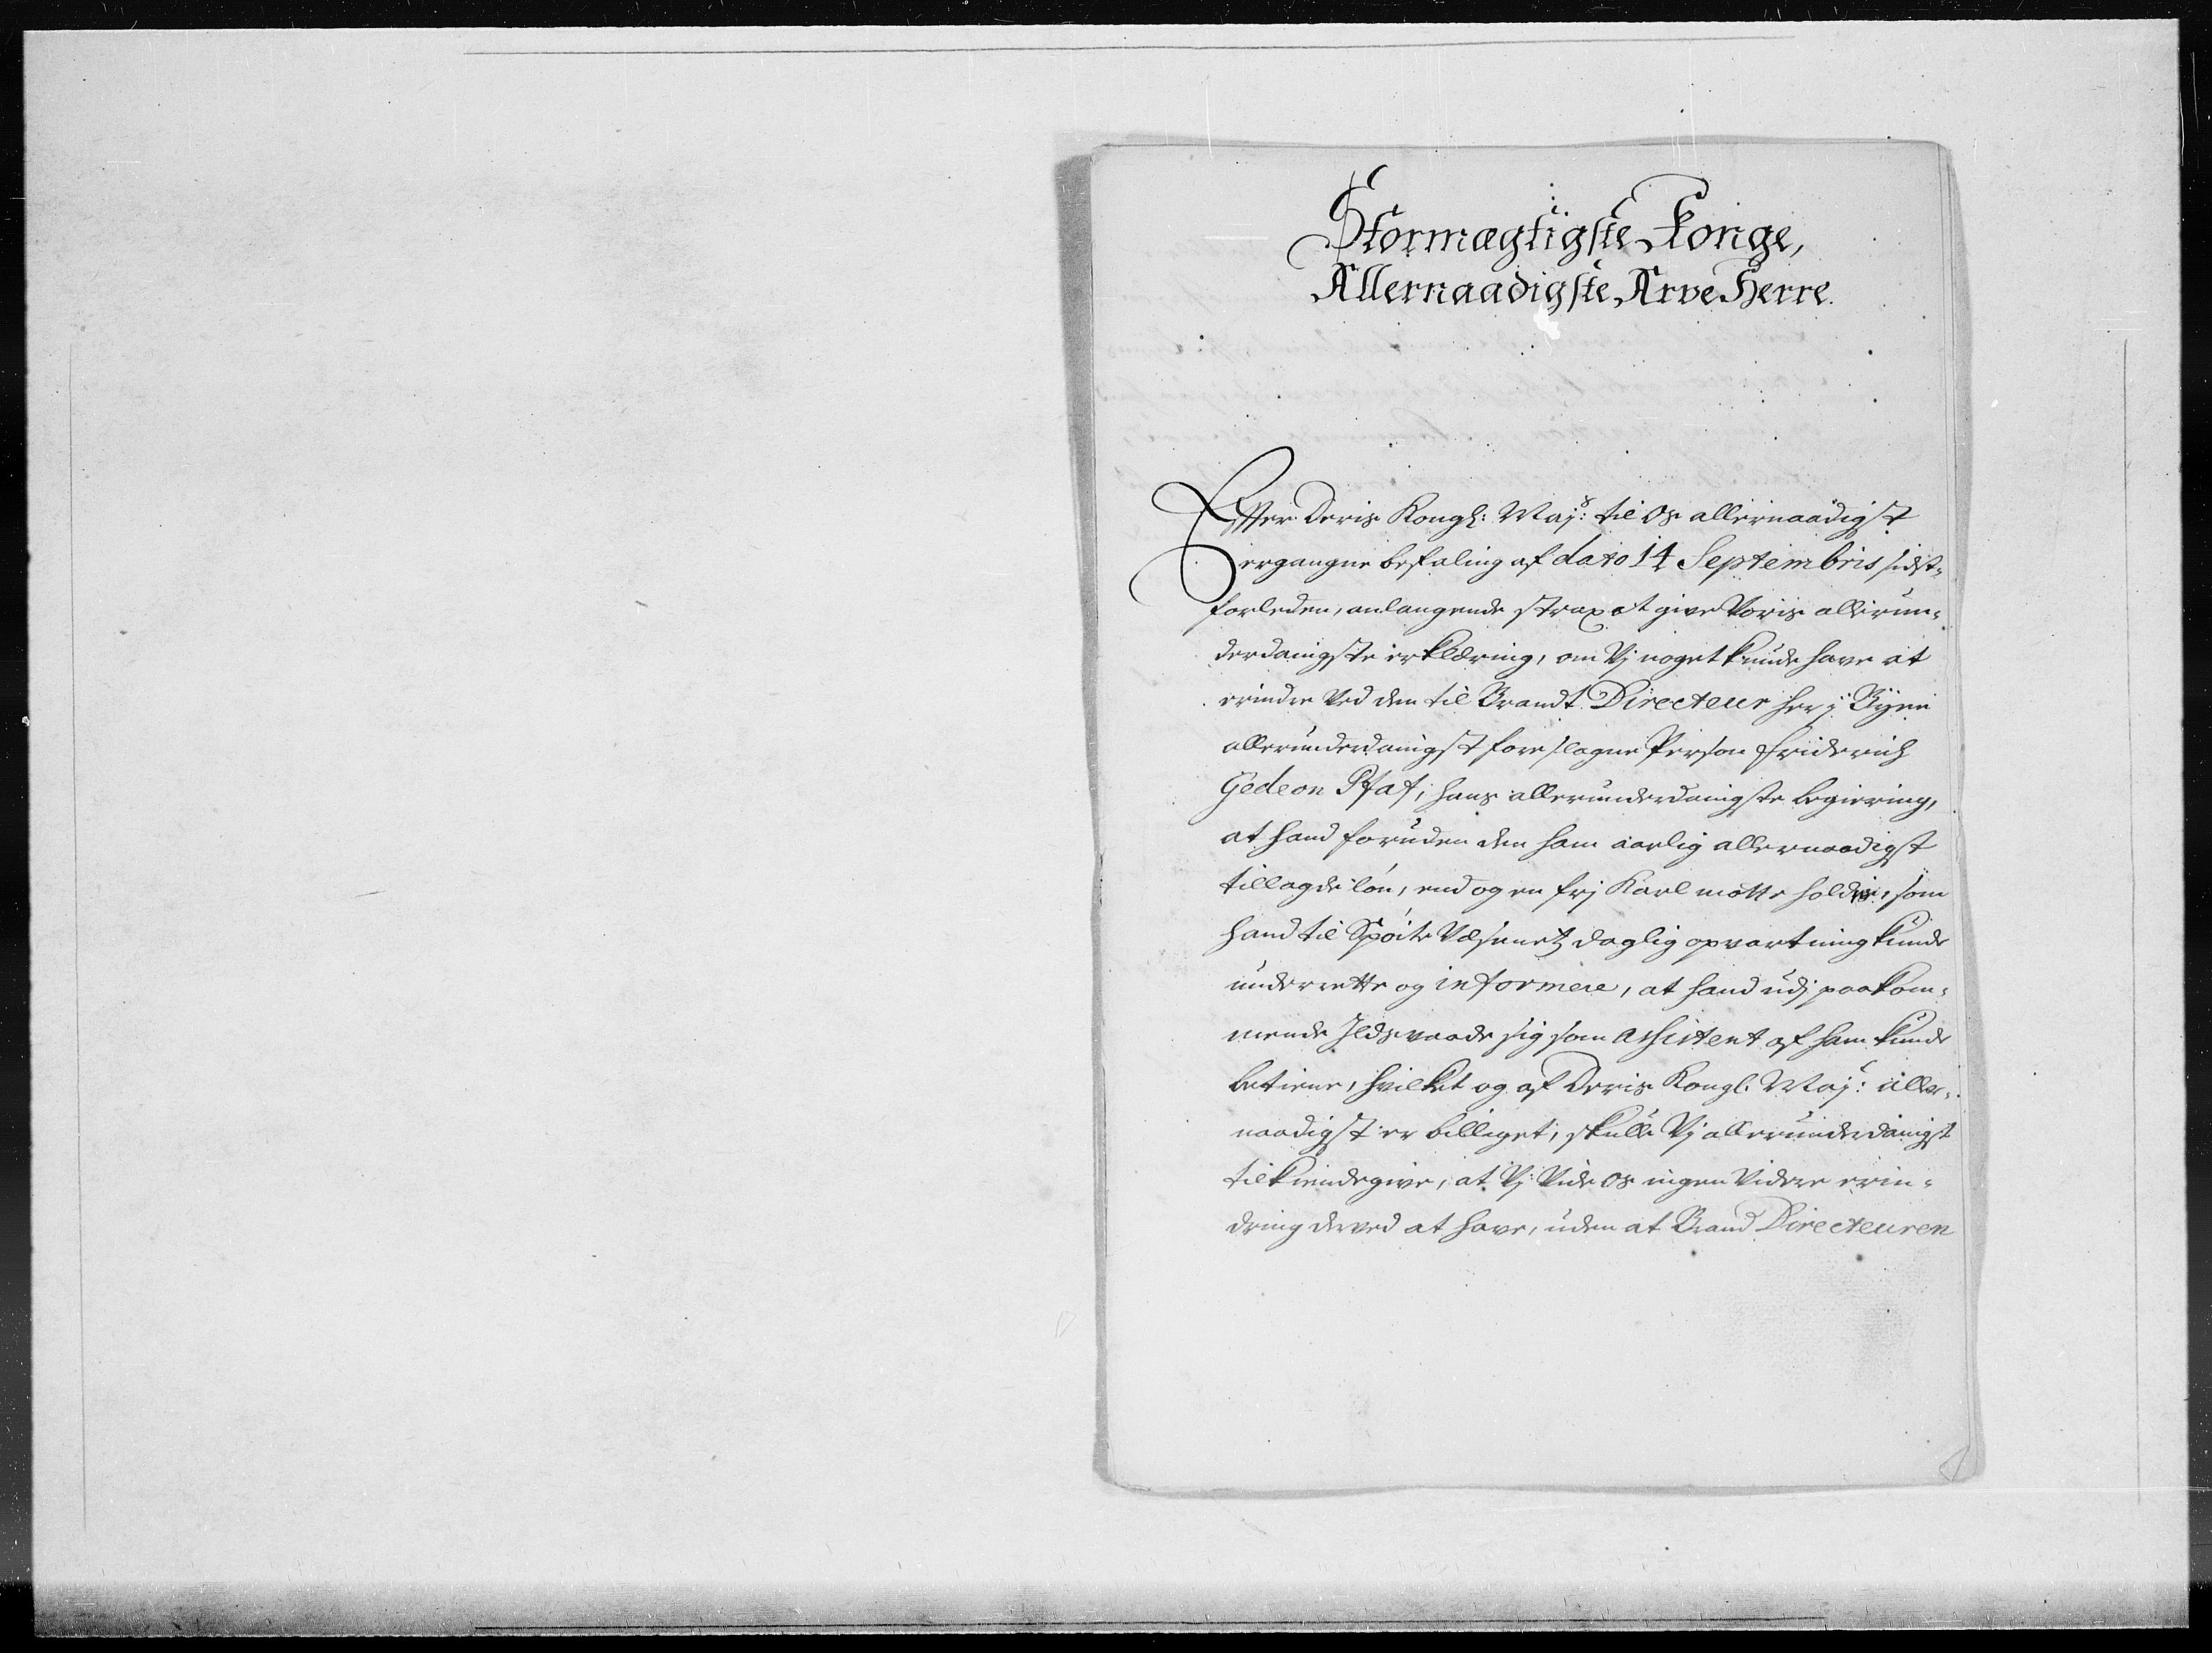 Stormægtigste Konge,
Allernaadigste Arve Herre.
Effter Deris Kongl: May:s til os allernaadigst
ergangne befaling af dato 14 Septembris sidst-
forleden, anlangende strax at give Voris allerun-
derdanigste erklæring, om Vj noget kunde have at
erindre Ved den til Brandt Directeur her j Byen
allerunderdanigst foreslagne Person Friderich
Gedeon Pfaf, hans allerunderdanigste begiering,
at hand foruden den ham aarlig allernaadigst
tillagde løn, end og en frj Karl motte holde, som
hand til Spøite Væsenetz daglig opvartning kunde
underrette og informere, at hand udj paakom-
mende Jldsvaade sig som assistent af ham kunde
betiene, hvilket og af Deris Kongl. May: aller-
naadigst er billiget, skulle Vj allerunderdanigst
tilkiendegive, at Vj Vide os ingen Videre erin-
dring derved at have, uden at Brand Directeuren